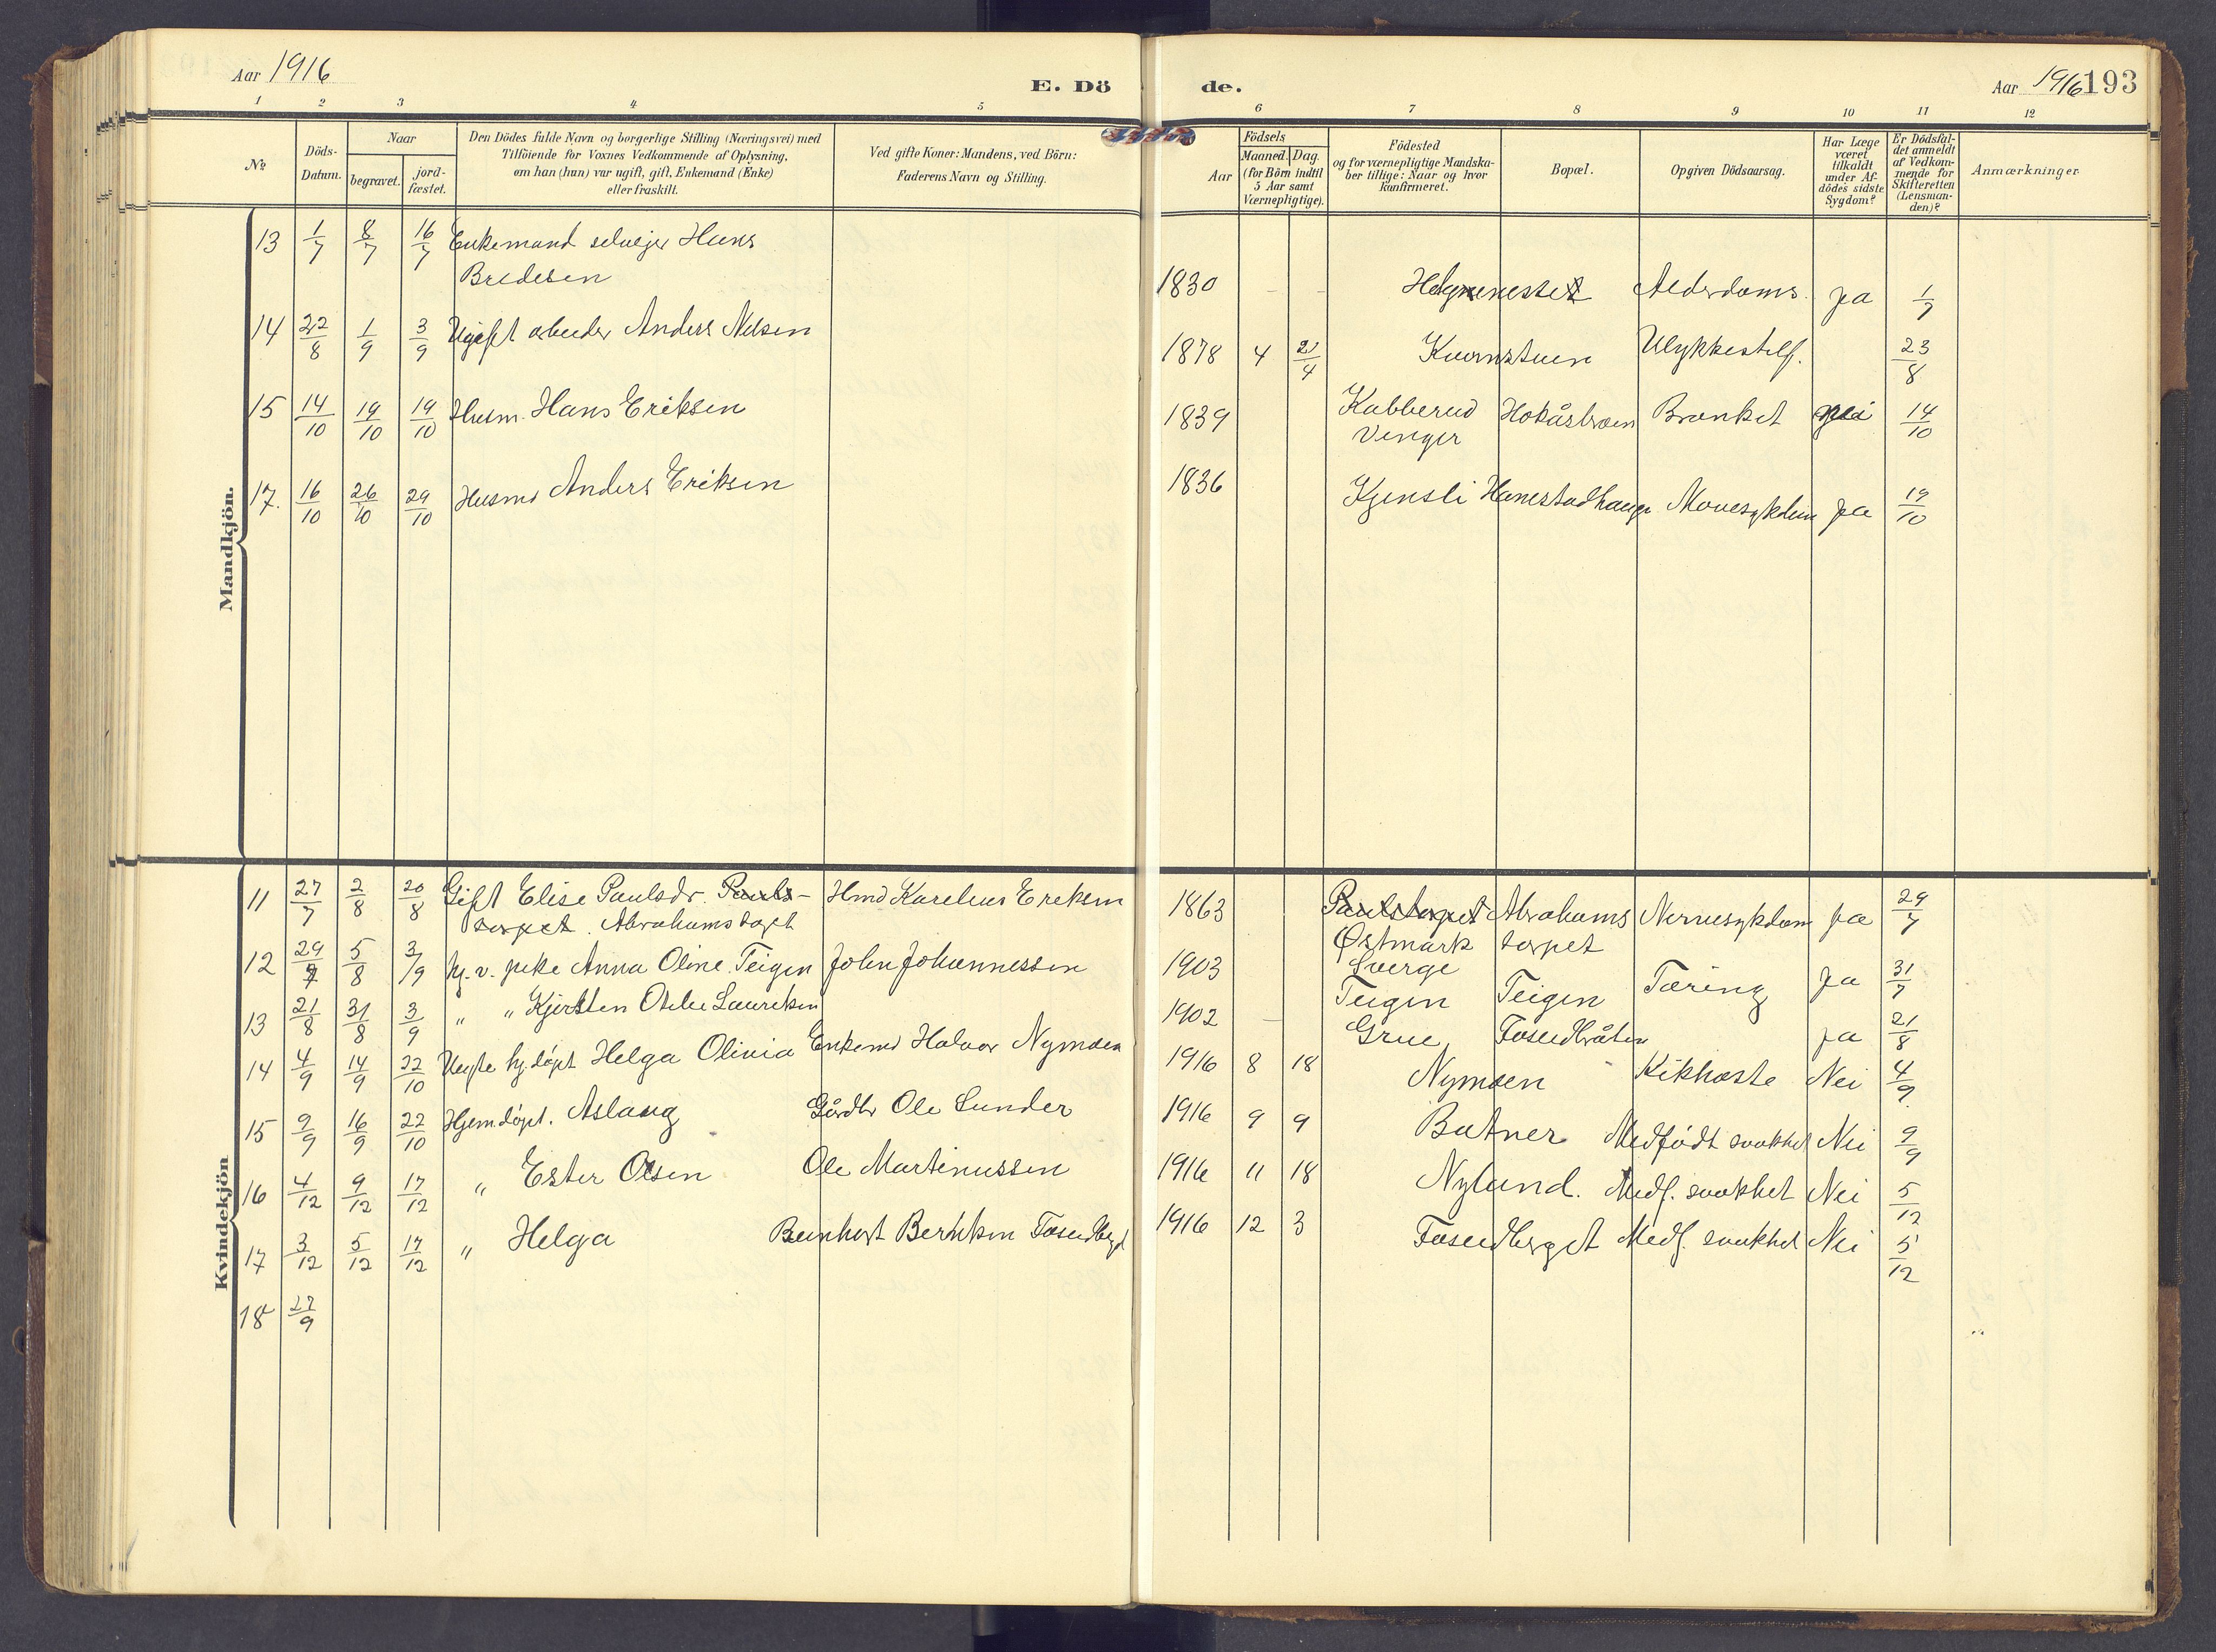 Aar 1916
E. Dö
de.
Aar 1916 193
1 2 3 4 5 6 7 8 9 10 11 12
No
Döds-
Datum.
Naar
begravet.
jord-
fæstet.
Den Dödes fulde Navn og borgerlige Stilling (Næringsvei) med
Tilföiende for Voxnes Vedkommende af Oplysning,
om han (hun) var ugift, gift, Enkemand (Enke)
eller fraskilt.
Ved gifte Koner: Mandens, ved Börn:
Faderens Navn og Stilling.
Födsels
Aar
Maaned. Dag.
(for Börn indtil
5 Aar samt
Værnepligtige).
Födested
og for værnepligtige Mandska-
ber tillige: Naar og hvor
konfirmeret.
Bopæl.
Opgiven Dödsaarsag.
Har Læge
været
tilkaldt
under Af-
dödes sidste
Sygdom?
Er Dödsfal-
det anmeldt
af Vedkom-
mende for
Skifteretten
(Lensman-
den)?
Anmærkninger
Mandkjön.
13 1/7 8/7 16/7 Enkemand selveier Hans
Bredesen
1830 - - Alderdoms. ja 1/7
14 22/8 1/9 3/9 Ugift arbeider Anders Nilsen
1878 4 21/4 Kvernstuen Ulykkestilf. 23/8
15 14/10 19/10 19/10 Husm. Hans Eriksen
1839 Kabberud Hokåsbroen Bronket nei 14/10
Vinger
17. 16/10 26/10 29/10 Husmd Anders Eriksen
1836 Kjensli Hanestadhauge Mavesykdom ja 19/10
Kvindekjön
11 27/7 2/8 20/8 Gift Elise Paulsdr. Pauls- Hmd Karelius Ereksen
torpet. Abrahamstorpet
1863 Paulstorpet Abrahams Nervesykdom ja 29/7
Østmark torpet
Sverge
12 29/7 5/8 3/9 hj.v. pike Anna Oline Teigen John Johannessen
1903 Teigen Teigen Tæring ja 31/7
13 21/8 31/8 3/9 " " Kjersten Otelie Lauritsen
1902 - Grue Fosudbråten ja 21/8
14 4/9 14/9 22/10 Uegte hj.døpt Helga Olivia Enkemd Halvor Nymoen
1916 8 18 Nymoen Kikhoste Nei 4/9
15 9/9 16/9 22/10 Hjemdøpt. Aslaug Gårdbr Ole Sunder
1916 9 9 Butner Medfødt svakhet Nei 9/9
16 4/12 9/12 17/12 " Ester Olsen Ole Martinussen
1916 11 18 Nylund. Medf. svakhet Nei 5/12
17 3/12 5/12 17/12 " Helga Bernhart Berntsen Fosudberget
1916 12 3 Fosudberget Medf. svakhet Nei 5/12
18 27/9